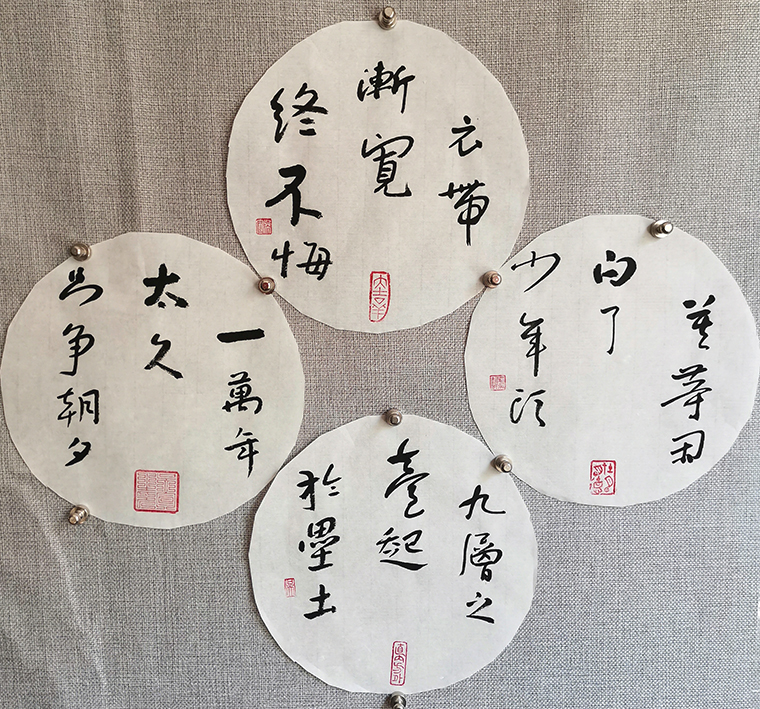 衣帶
漸寬
終不悔
莫等閑
白了
少年頭
一萬年
太久
只争朝夕
九層之
臺起
於壘土